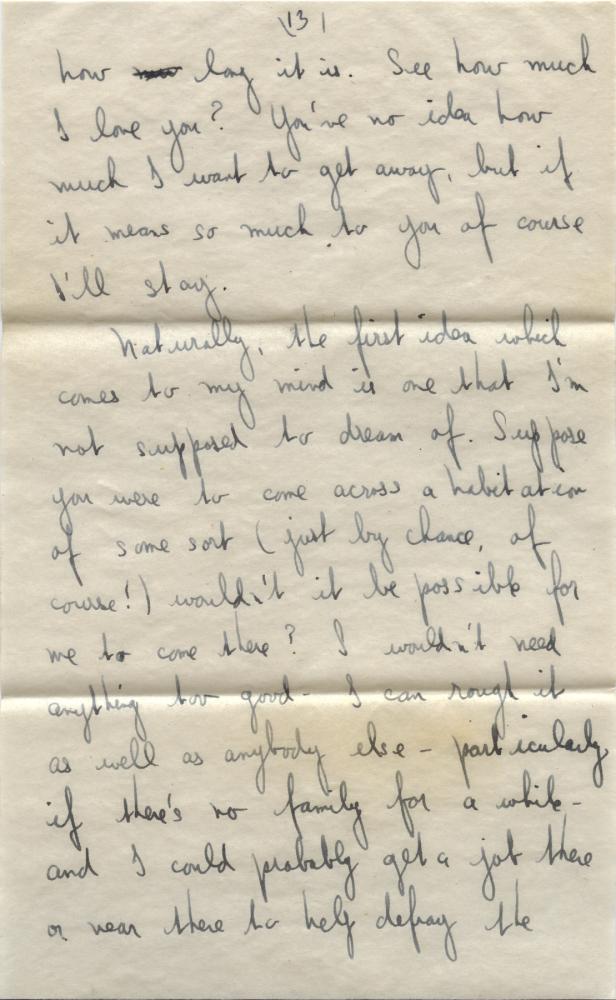 13
how long it is. See how much
I love you? You've no idea how
much I want to get away, but if
it means so much to you of course
I'll stay.
Naturally, the first idea which
comes to my mind is one that I'm
not supposed to dream of. Suppose
you were to come across a habitation
of some sort (just by chance, of
course!) wouldn't it be possible for
me to come there? I wouldn't need
anything too good - I can rough it
as well as anybody else - particularly
if there's no family for a while -
and I could probably get a job there
or near there to help defray the